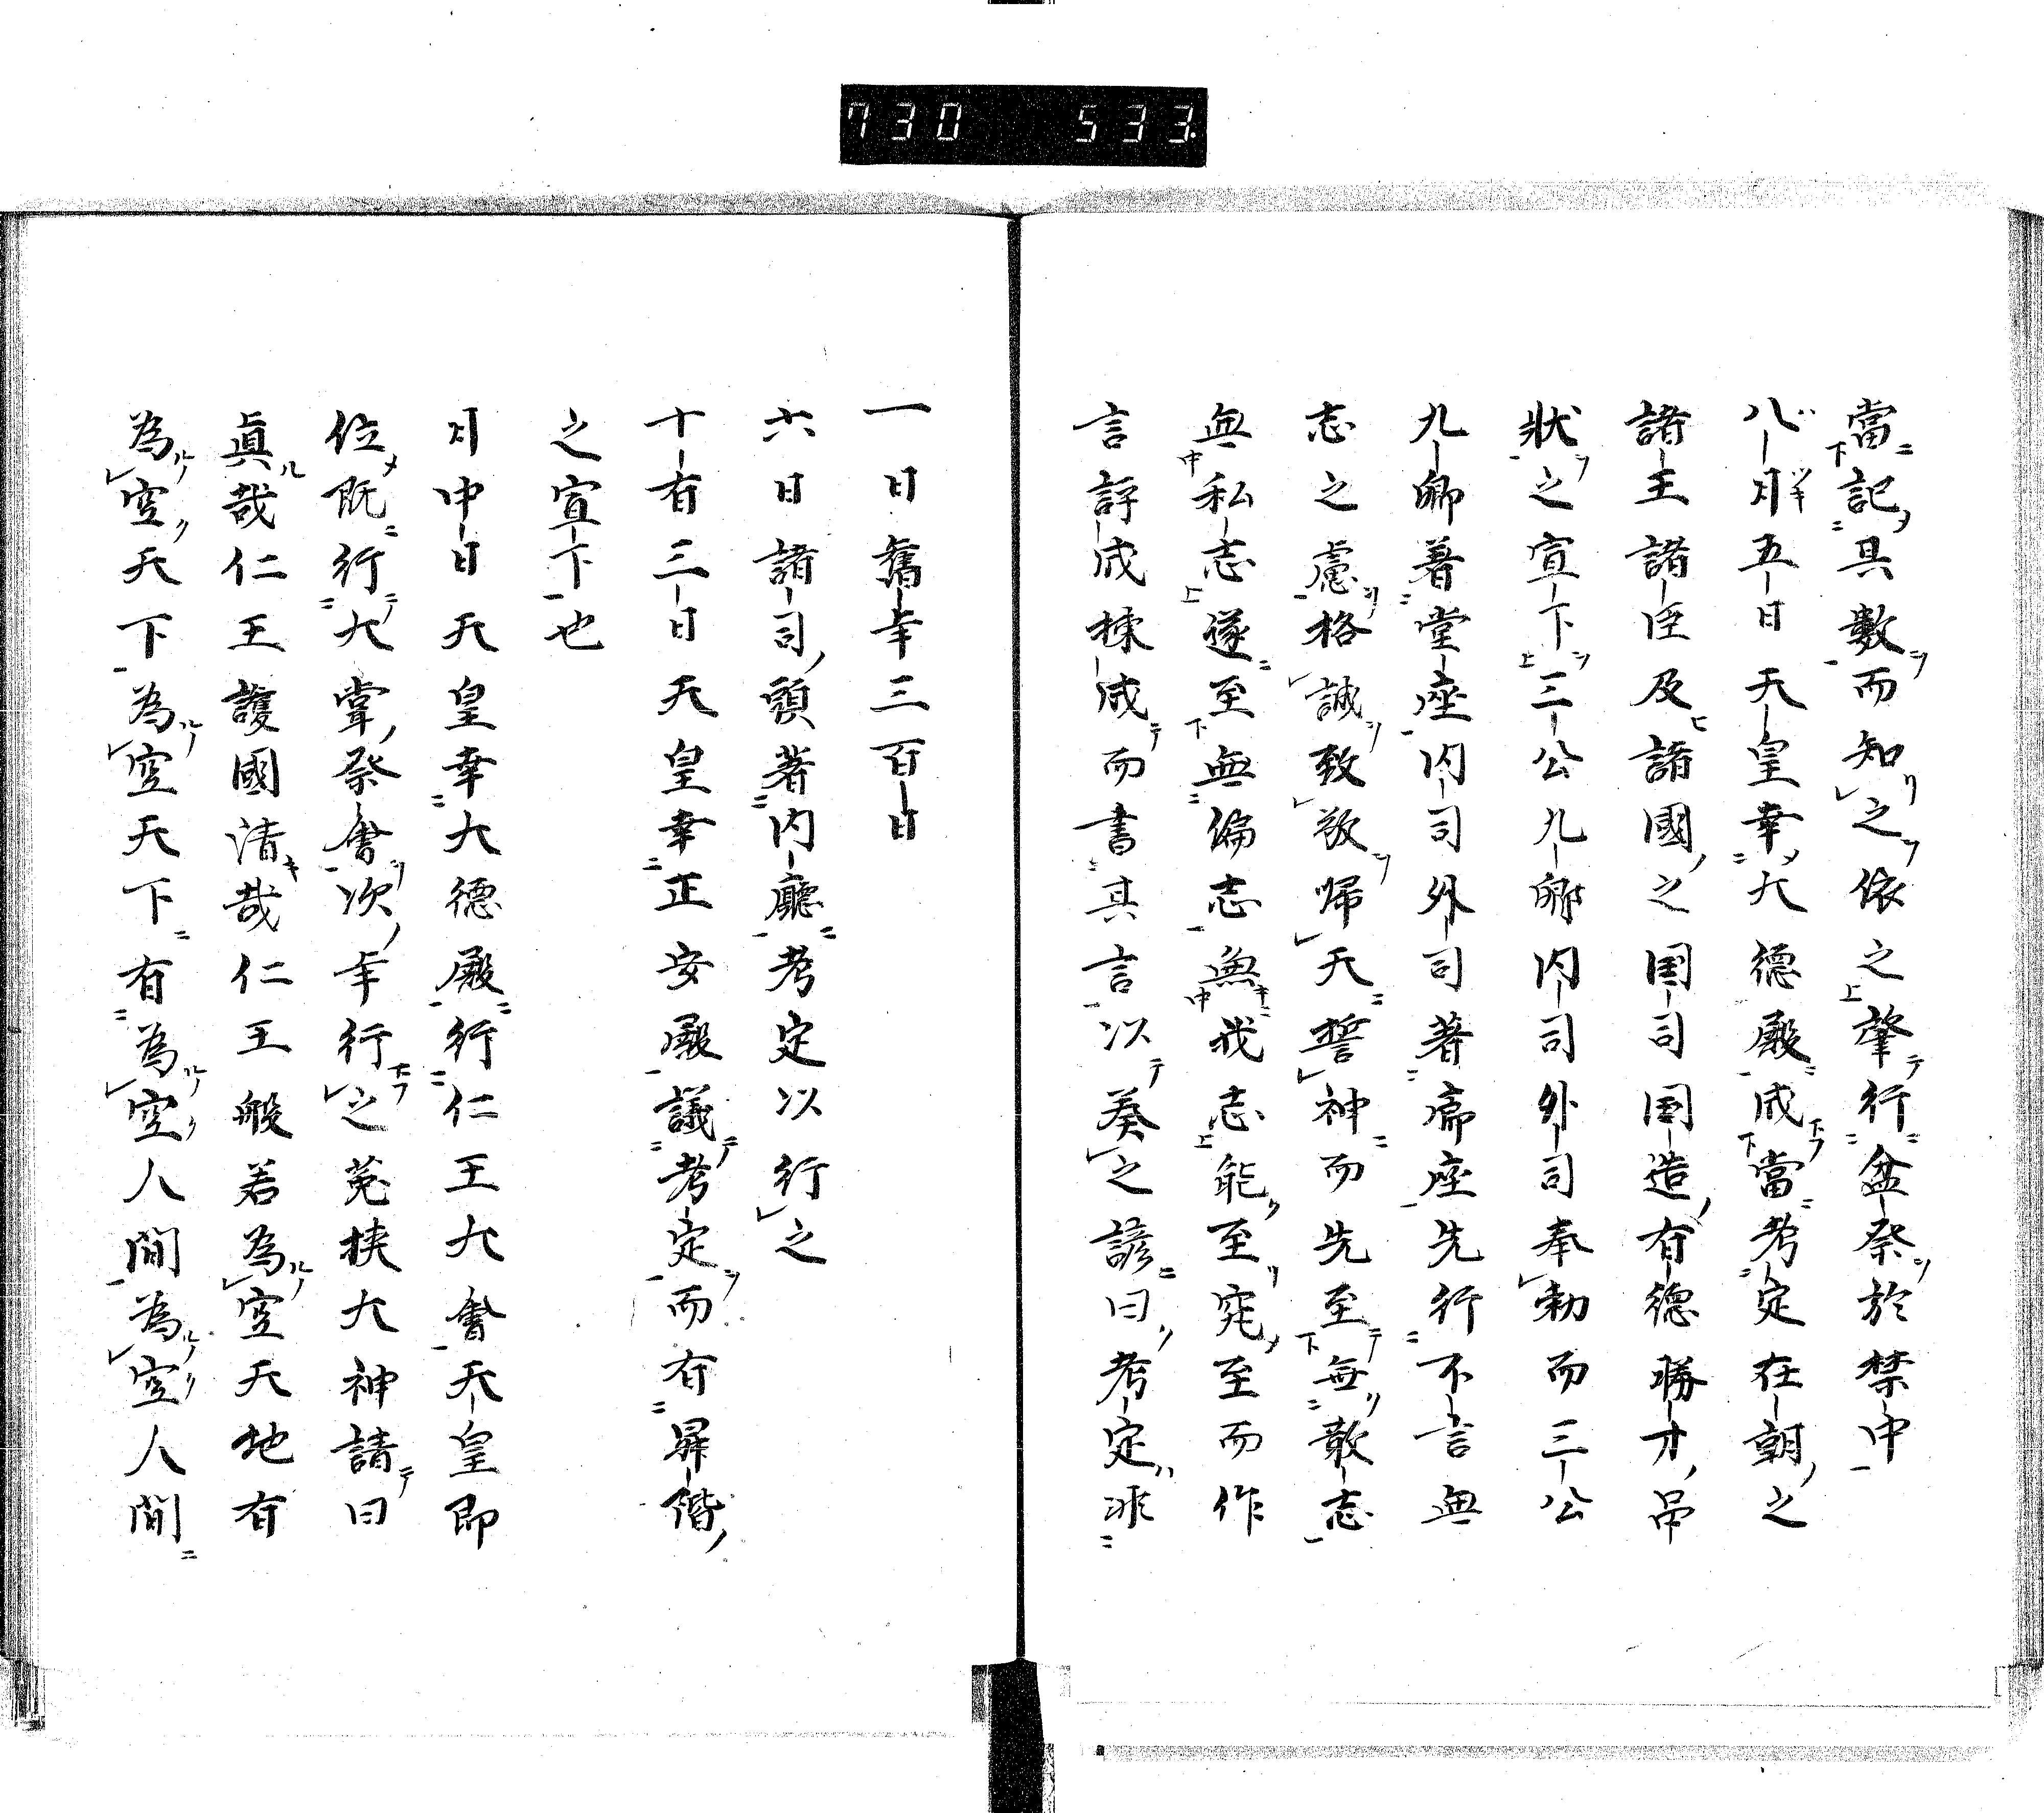 730 533.
當記具數而知之依之肇行盆祭於禁中
八月五日天皇幸大德殿成當考定在朝之
諸王諸臣及諸國之国司国造有德勝才吊
狀之宣下三公九卿內司外司奉勅而三公
九卿著堂座內司外司著扁座先行不言無
志之慮格誠致敬歸天誓神而先至無敢志
無私志遂至無偏志無我志能至究至而作
言諄成揀成而書其言以葵之諺曰考定非
一日舊年三百日
六日諸司頭著內廳考定以行之
十有三日天皇幸正安殿議考定而有昇偕
之宣下也
月中日天皇幸大德殿行仁王大會天皇即
位既行大甞祭會次年行之菟狹大神請曰
眞哉仁王護國淸哉仁王般若為空天地有
為空天下為空天下有為空人間為空人間